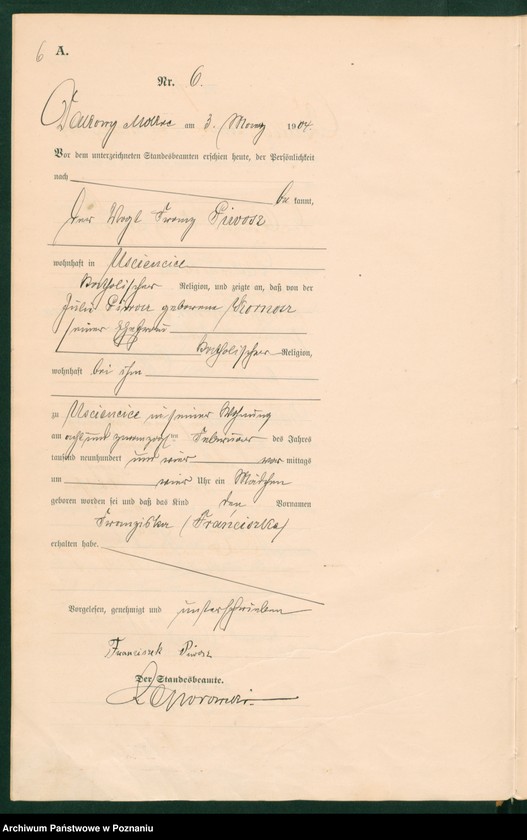 6 A.
Nr. 6.
Dakowy Mokre am 3. März 1904.
Vor dem unterzeichneten Standesbeamten erschien heute, der Persönlichkeit
nach
be kannt,
der Vogt Franz Piwosz
wohnhaft in Usciencice
katholischer Religion, und zeigte an, daß von der
Julie Piwosz geborene
seiner Ehefrau
katholischer Religion,
wohnhaft bei ihm
zu Usciencice in seiner Wohnung
am acht und zwanzigsten Februar des Jahres
tausend neunhundert und vier vor mittags
um vier Uhr ein Mädchen
geboren worden sei und daß das Kind den Vornamen
Franziska (Franciszka)
erhalten habe.
Vorgelesen, genehmigt und unterschrieben
Franciszek Piwosz
Der Standesbeamte.
Archiwum Państwowe w Poznaniu